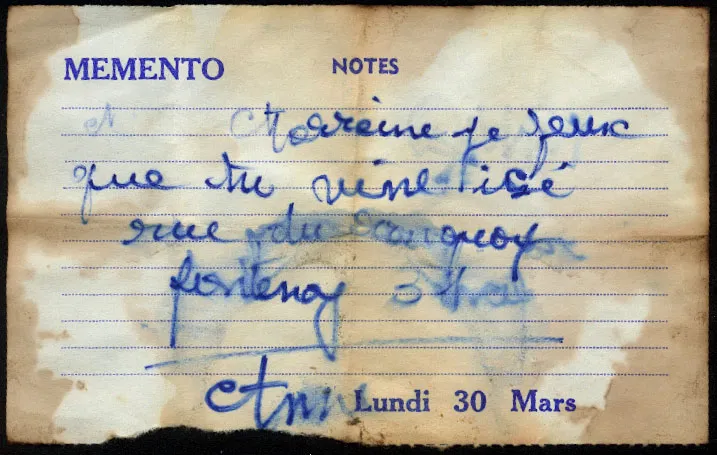 MEMENTO NOTES
Marcine je veux
que tu vine icé
rue du
fontenoy 3
Lundi 30 Mars